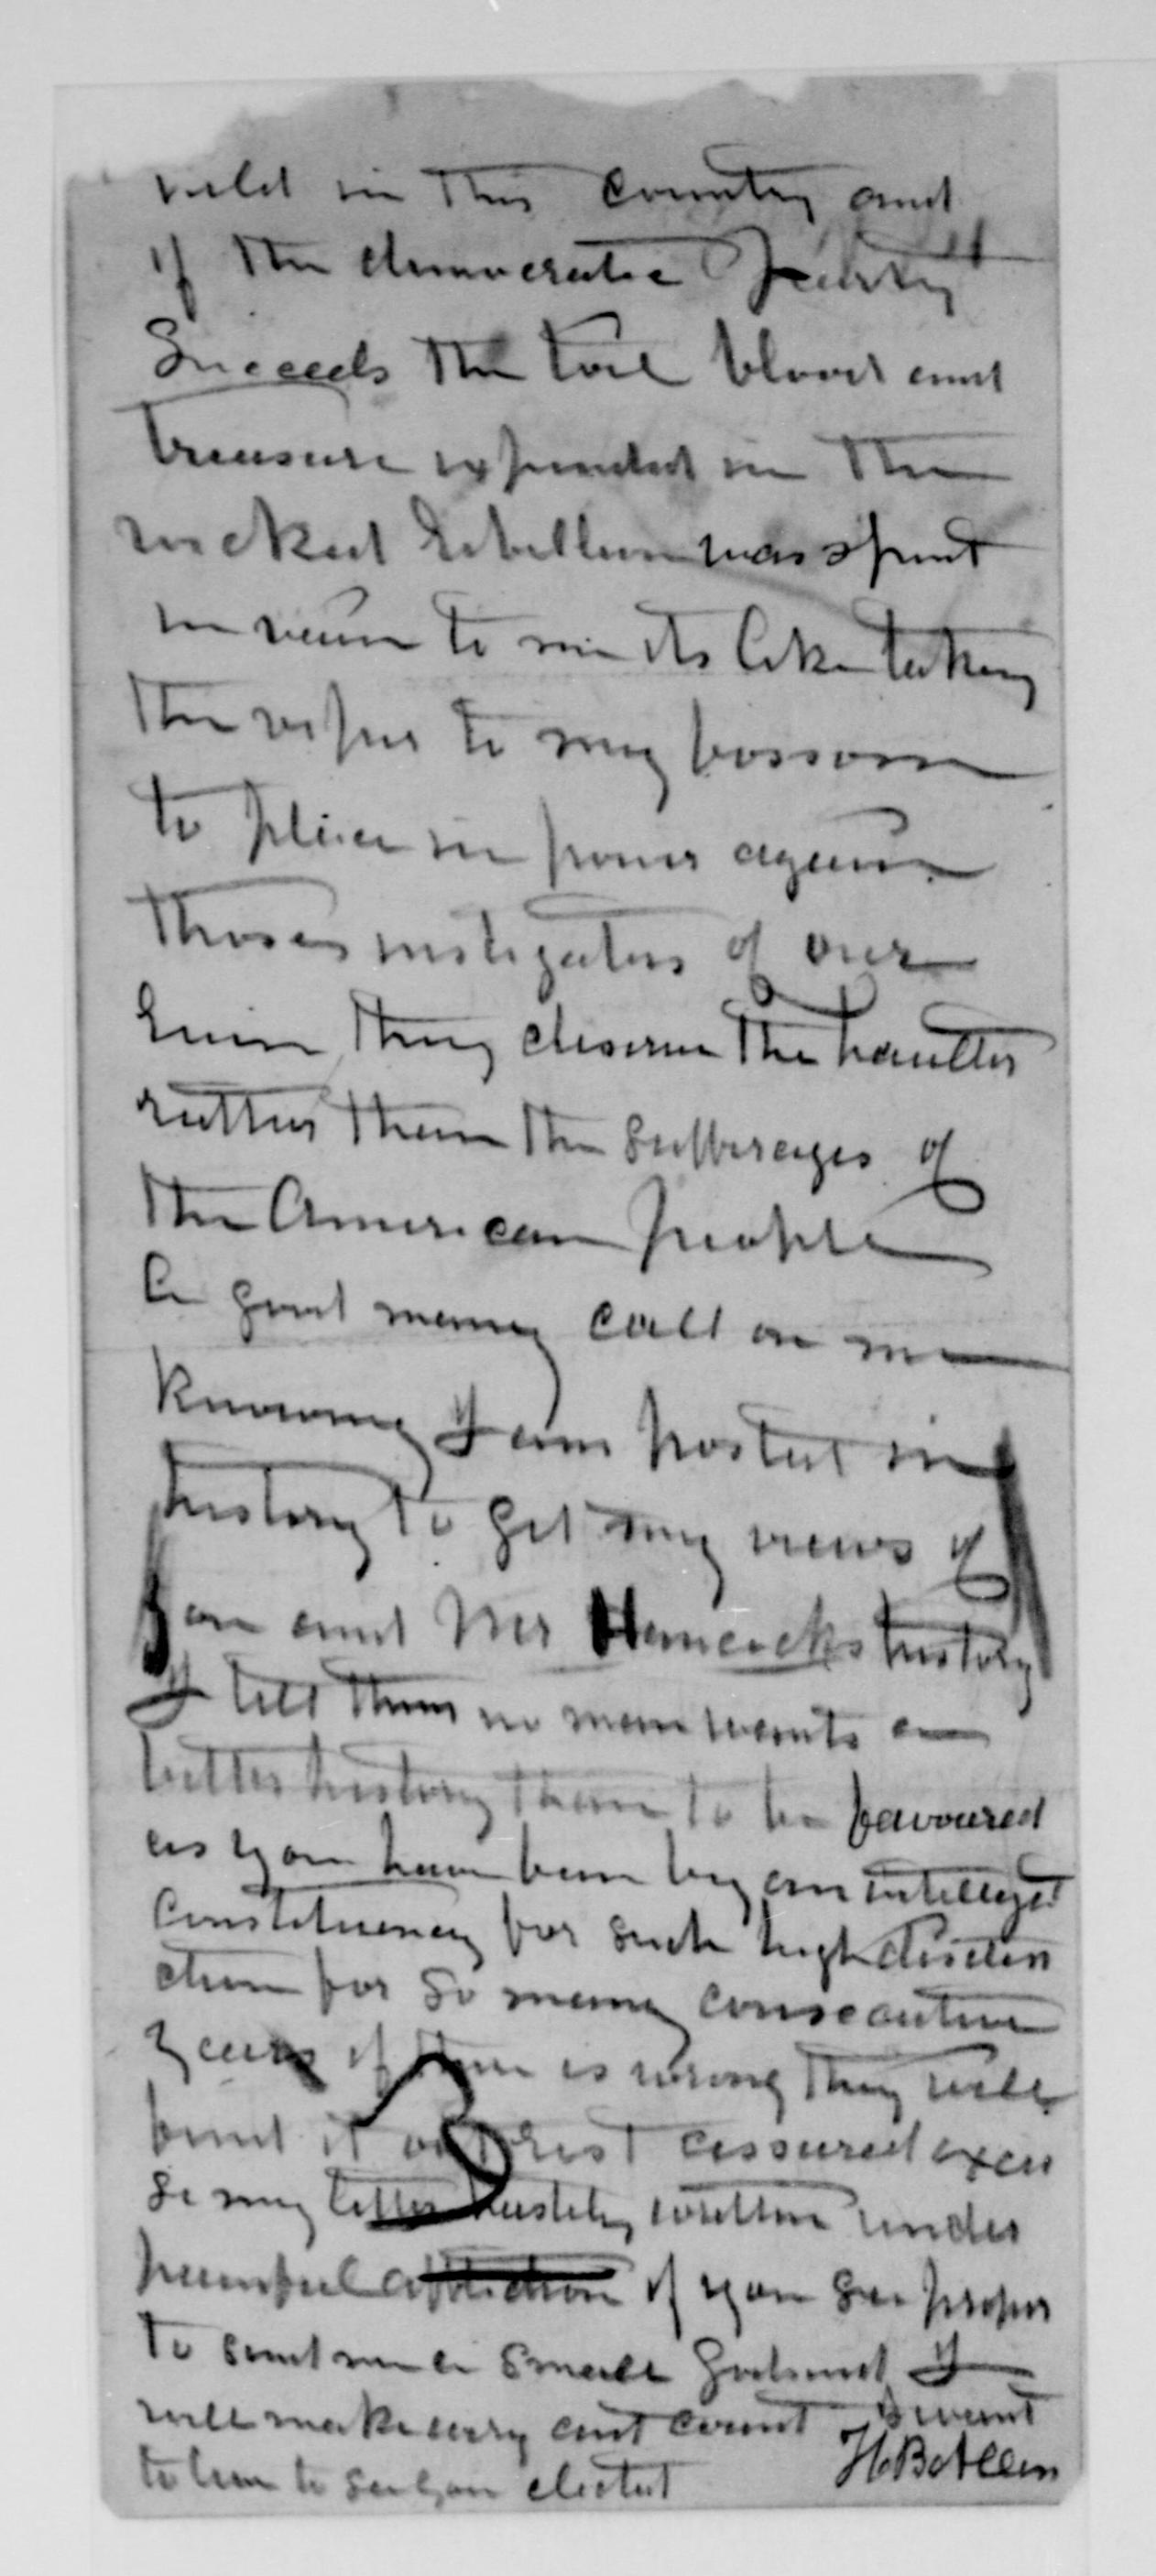 held in this country and
if the democratic Party
Succeeds the toil blood and
treasure expended in the
wicked Rebellion was spent
in vain to me its like taking
the viper to my bossom
to place in power again
those instigators of our
Ruin they deserve the haulter
rather than the sufferages of
the American people
a good many call on me
knowing I am posted in
history to get my views of
you and Mr Hancocks history
I tell them no man wants a
better history than to be favoured
as you have been by an intelligent
Constituency for such high distin
ction for so many consecutive
years if there is wrong they will
find it out rest assured excu
se my letter hastily written under
painful affliction if you see proper
to send me a small I
will make every cent count I want
to live to see you elected
H B Allen